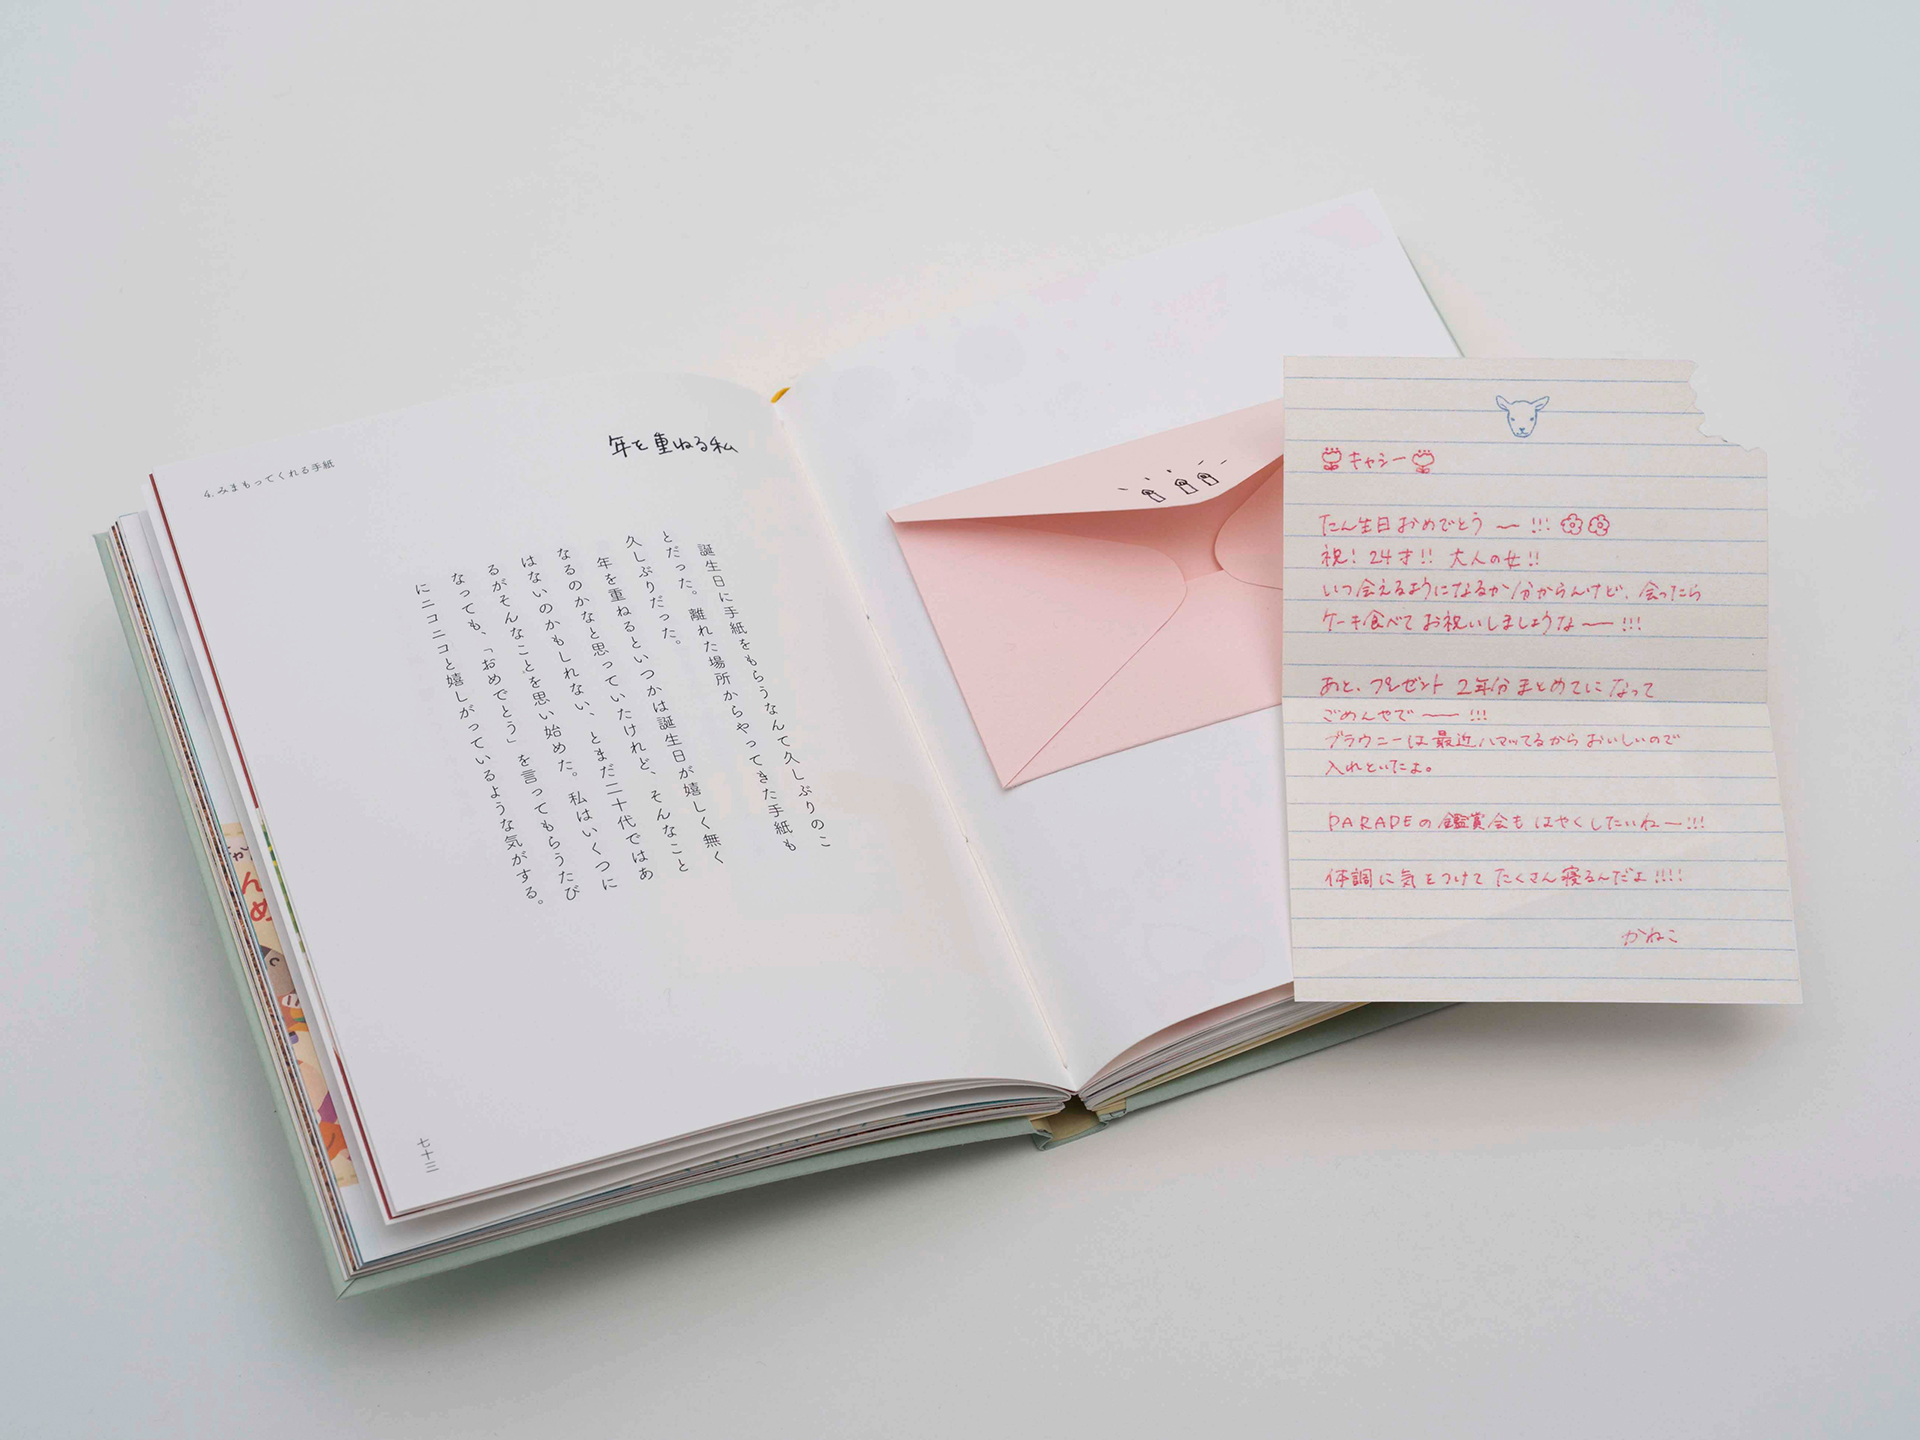 4. みまもってくれる手紙
年を重ねる私
誕生日に手紙をもらうなんて久しぶりのこ
とだった。離れた場所からやってきた手紙も
久しぶりだった。
年を重ねるといつかは誕生日が嬉しく無く
なるのかなと思っていたけれど、そんなこと
はないのかもしれない、とまだ二十代ではあ
るがそんなことを思い始めた。私はいくつに
なっても、「おめでとう」を言ってもらうたび
にニコニコと嬉しがっているような気がする。
七十三
キャシー
たん生日おめでとう〜!!!
祝!24才!!大人の女!!
いつ会えるようになるか分からんけど、会ったら
ケーキ食べてお祝いしましょうな〜!!!
あと、プレゼント2年分まとめてになって
ごめんやで〜!!!
ブラウニーは最近ハマってるからおいしいので
入れといたよ。
PARADEの鑑賞会もはやくしたいね〜!!!
体調に気をつけてたくさん寝るんだよ!!!!
かねこ